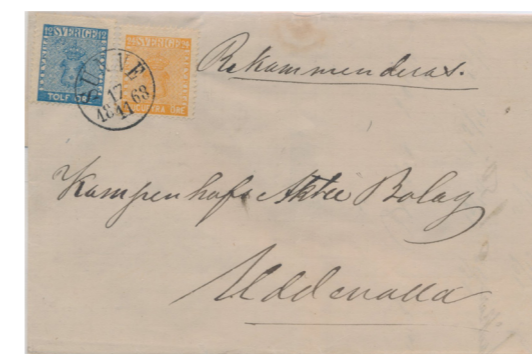 SVERIGE SVERIGE
TOLF
SUNNE
17
18 11 63
Rekommenderas.
Kampenhofs Aktie Bolag
Uddevalla